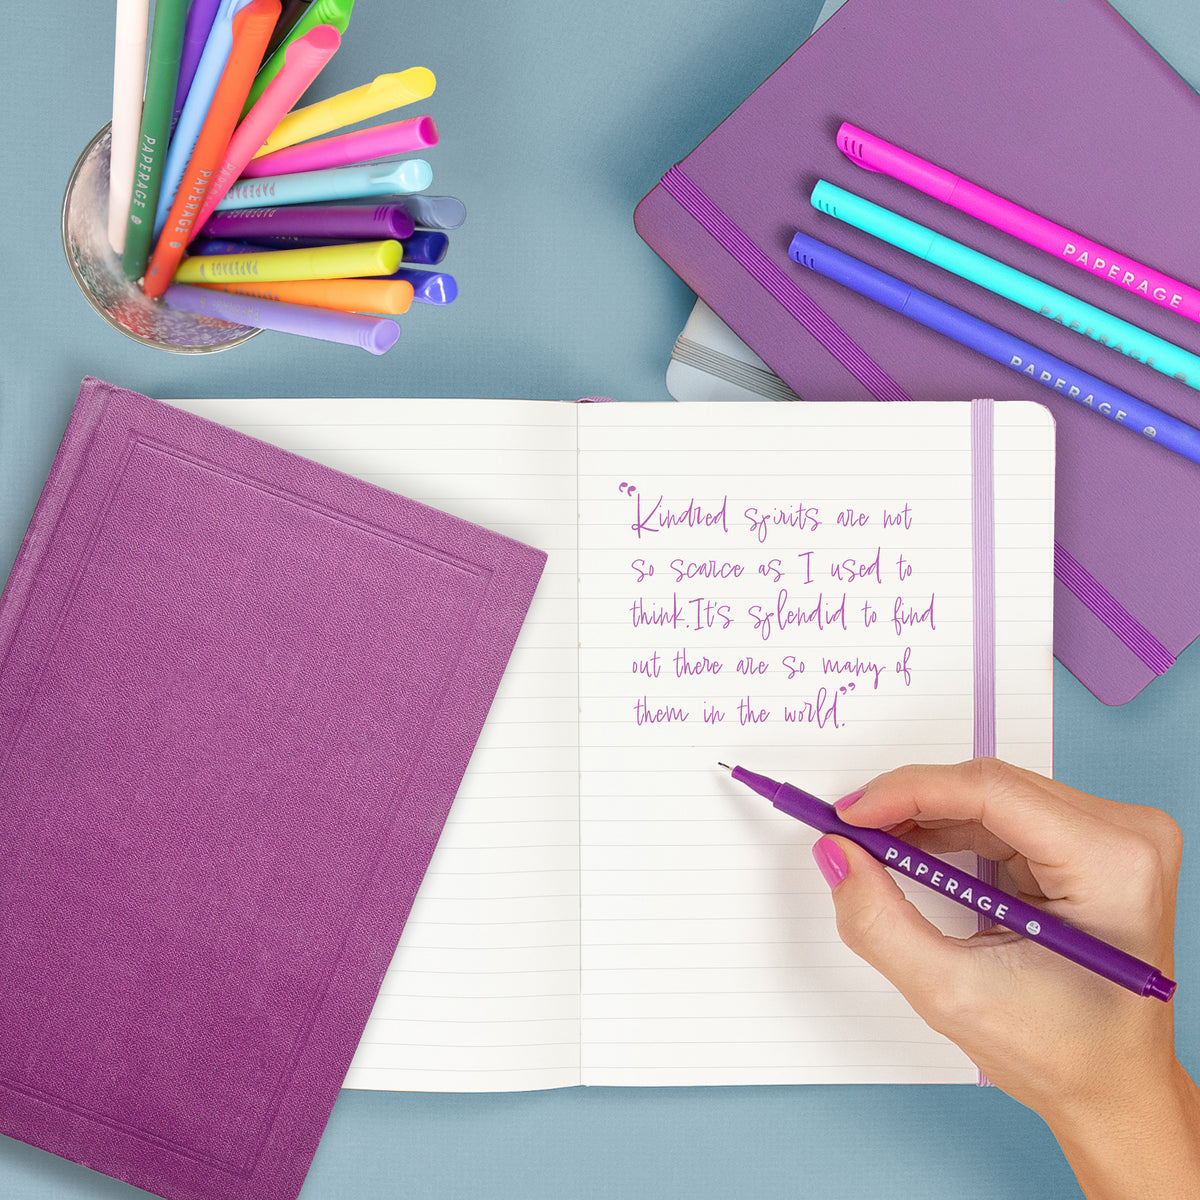 PAPERAGE
PAPERAGE
PAPERAGE
PAPERAGE
PAPERAGE
PAPERAGE
PAPERAGE
PAPERAGE
“Kindred spirits are not
so scarce as I used to
think. It's splendid to find
out there are so many of
them in the world.”
PAPERAGE